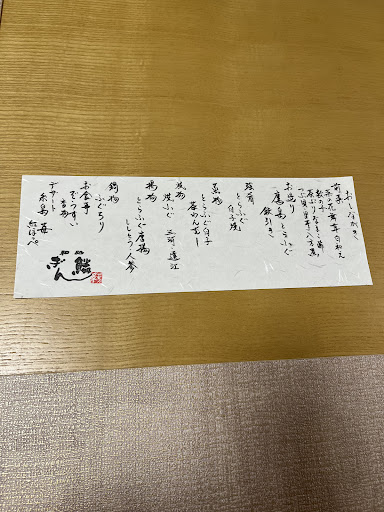 おしながき
前菜
菜の花 舞茸 白和え
お造り
鷹島とらふぐ
鉄引き
強肴
とらふぐ
白子焼
蒸物
とらふぐ白子
茶わんむし
浅ふぐ 三河・遠江
揚物
とらふぐ唐揚
ししとう・人参
鍋物
ふぐちり
お食事
ぞうすい
香物
デザート
糸島 苺
紅ほっぺ
ぎん